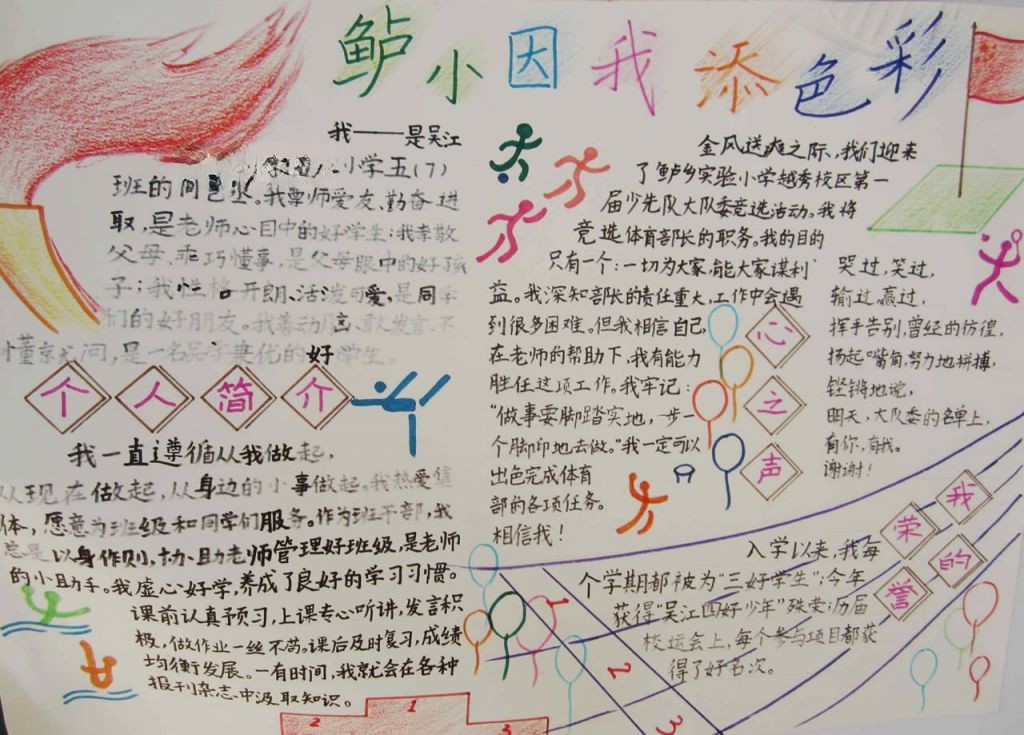 鲈小因我添色彩
我——是吴江
小学五(7)
班的闫 。我尊师爱友、勤奋进
取,是老师心目中的好学生;我孝敬
父母、乖巧懂事,是父母眼中的好孩
子;我性格 开朗、活泼可爱,是同学
们的好朋友。我善动脑、敢发言、不
懂就问,是一名品学兼优的好学生。
个人简介
我一直遵循从我做起,
从现在做起,从身边的小事做起。我热爱集
体,愿意为班级和同学们服务。作为班干部,我
总是以身作则,协助老师管理好班级,是老师
的小助手。我虚心好学,养成了良好的学习习惯。
课前认真预习,上课专心听讲,发言积
极,做作业一丝不苟。课后及时复习,成绩
均衡发展。一有时间,我就会在各种
报刊杂志中汲取知识。
金风送爽之际,我们迎来
了鲈乡实验小学越秀校区第一
届少先队大队委竞选活动。我将
竞选体育部长的职务。我的目的
只有一个:一切为大家,能大家谋利
益。我深知部长的责任重大,工作中会遇
到很多困难。但我相信自己
在老师的帮助下,我有能力
胜任这项工作。我牢记:
“做事要脚踏实地,一步一
个脚印地去做。”我一定可以
出色完成体育
部的各项任务。
相信我!
心之声
哭过,笑过,
输过,赢过,
挥手告别,曾经的彷徨,
扬起嘴角,努力地拼搏,
铿锵地说,
明天,大队委的名单上,
有你,有我。
谢谢!
我的荣誉
入学以来,我每
个学期都被为“三好学生”;今年
获得“吴江四好少年”殊荣;历届
校运会上,每个参与项目都获
得了好名次。
1
2
3
2
1
3